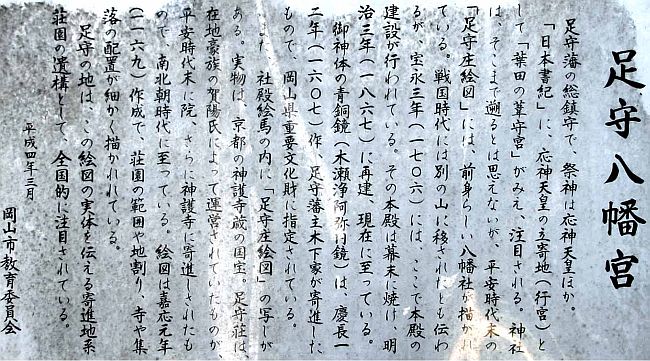 足守八幡宮
足守藩の総鎮守で、祭神は応神天皇ほか。
「日本書紀」に、応神天皇の立寄地(行宮)と
して「葉田の葦守宮」がみえ、注目される。神社
は、そこまで遡るとは思えないが、平安時代末の
「足守庄絵図」には、前身らしい八幡社が描かれ
ている。戦国時代には別の山に移されたとも伝わ
るが、宝永三年(一七〇六)には、ここで本殿の
建設が行われている。その本殿は幕末に焼け、明
治三年(一八六七)に再建、現在に至っている。
御神体の青銅鏡(木瀬浄阿弥
銘鏡)は、慶長一
二年(一六〇七)作、足守藩主木下家が寄進した
もので、岡山県重要文化財に指定されている。
また、社殿絵馬の内に「足守庄絵図」の写しが
ある。実物は、京都の神護寺蔵の国宝。足守荘は、
在地豪族の賀陽氏によって運営されていたものが、
平安時代末に院、さらに神護寺に寄進しされたも
ので、南北朝時代に至っている。絵図は嘉応元年
(一一六九)作成で、荘園の範囲や地割り、寺や集
落の配置が細かく描かれている。
足守の地は、この絵図の実体を伝える寄進地系
荘園の遺構として、全国的に注目されている。
平成四年三月
岡山市教育委員会